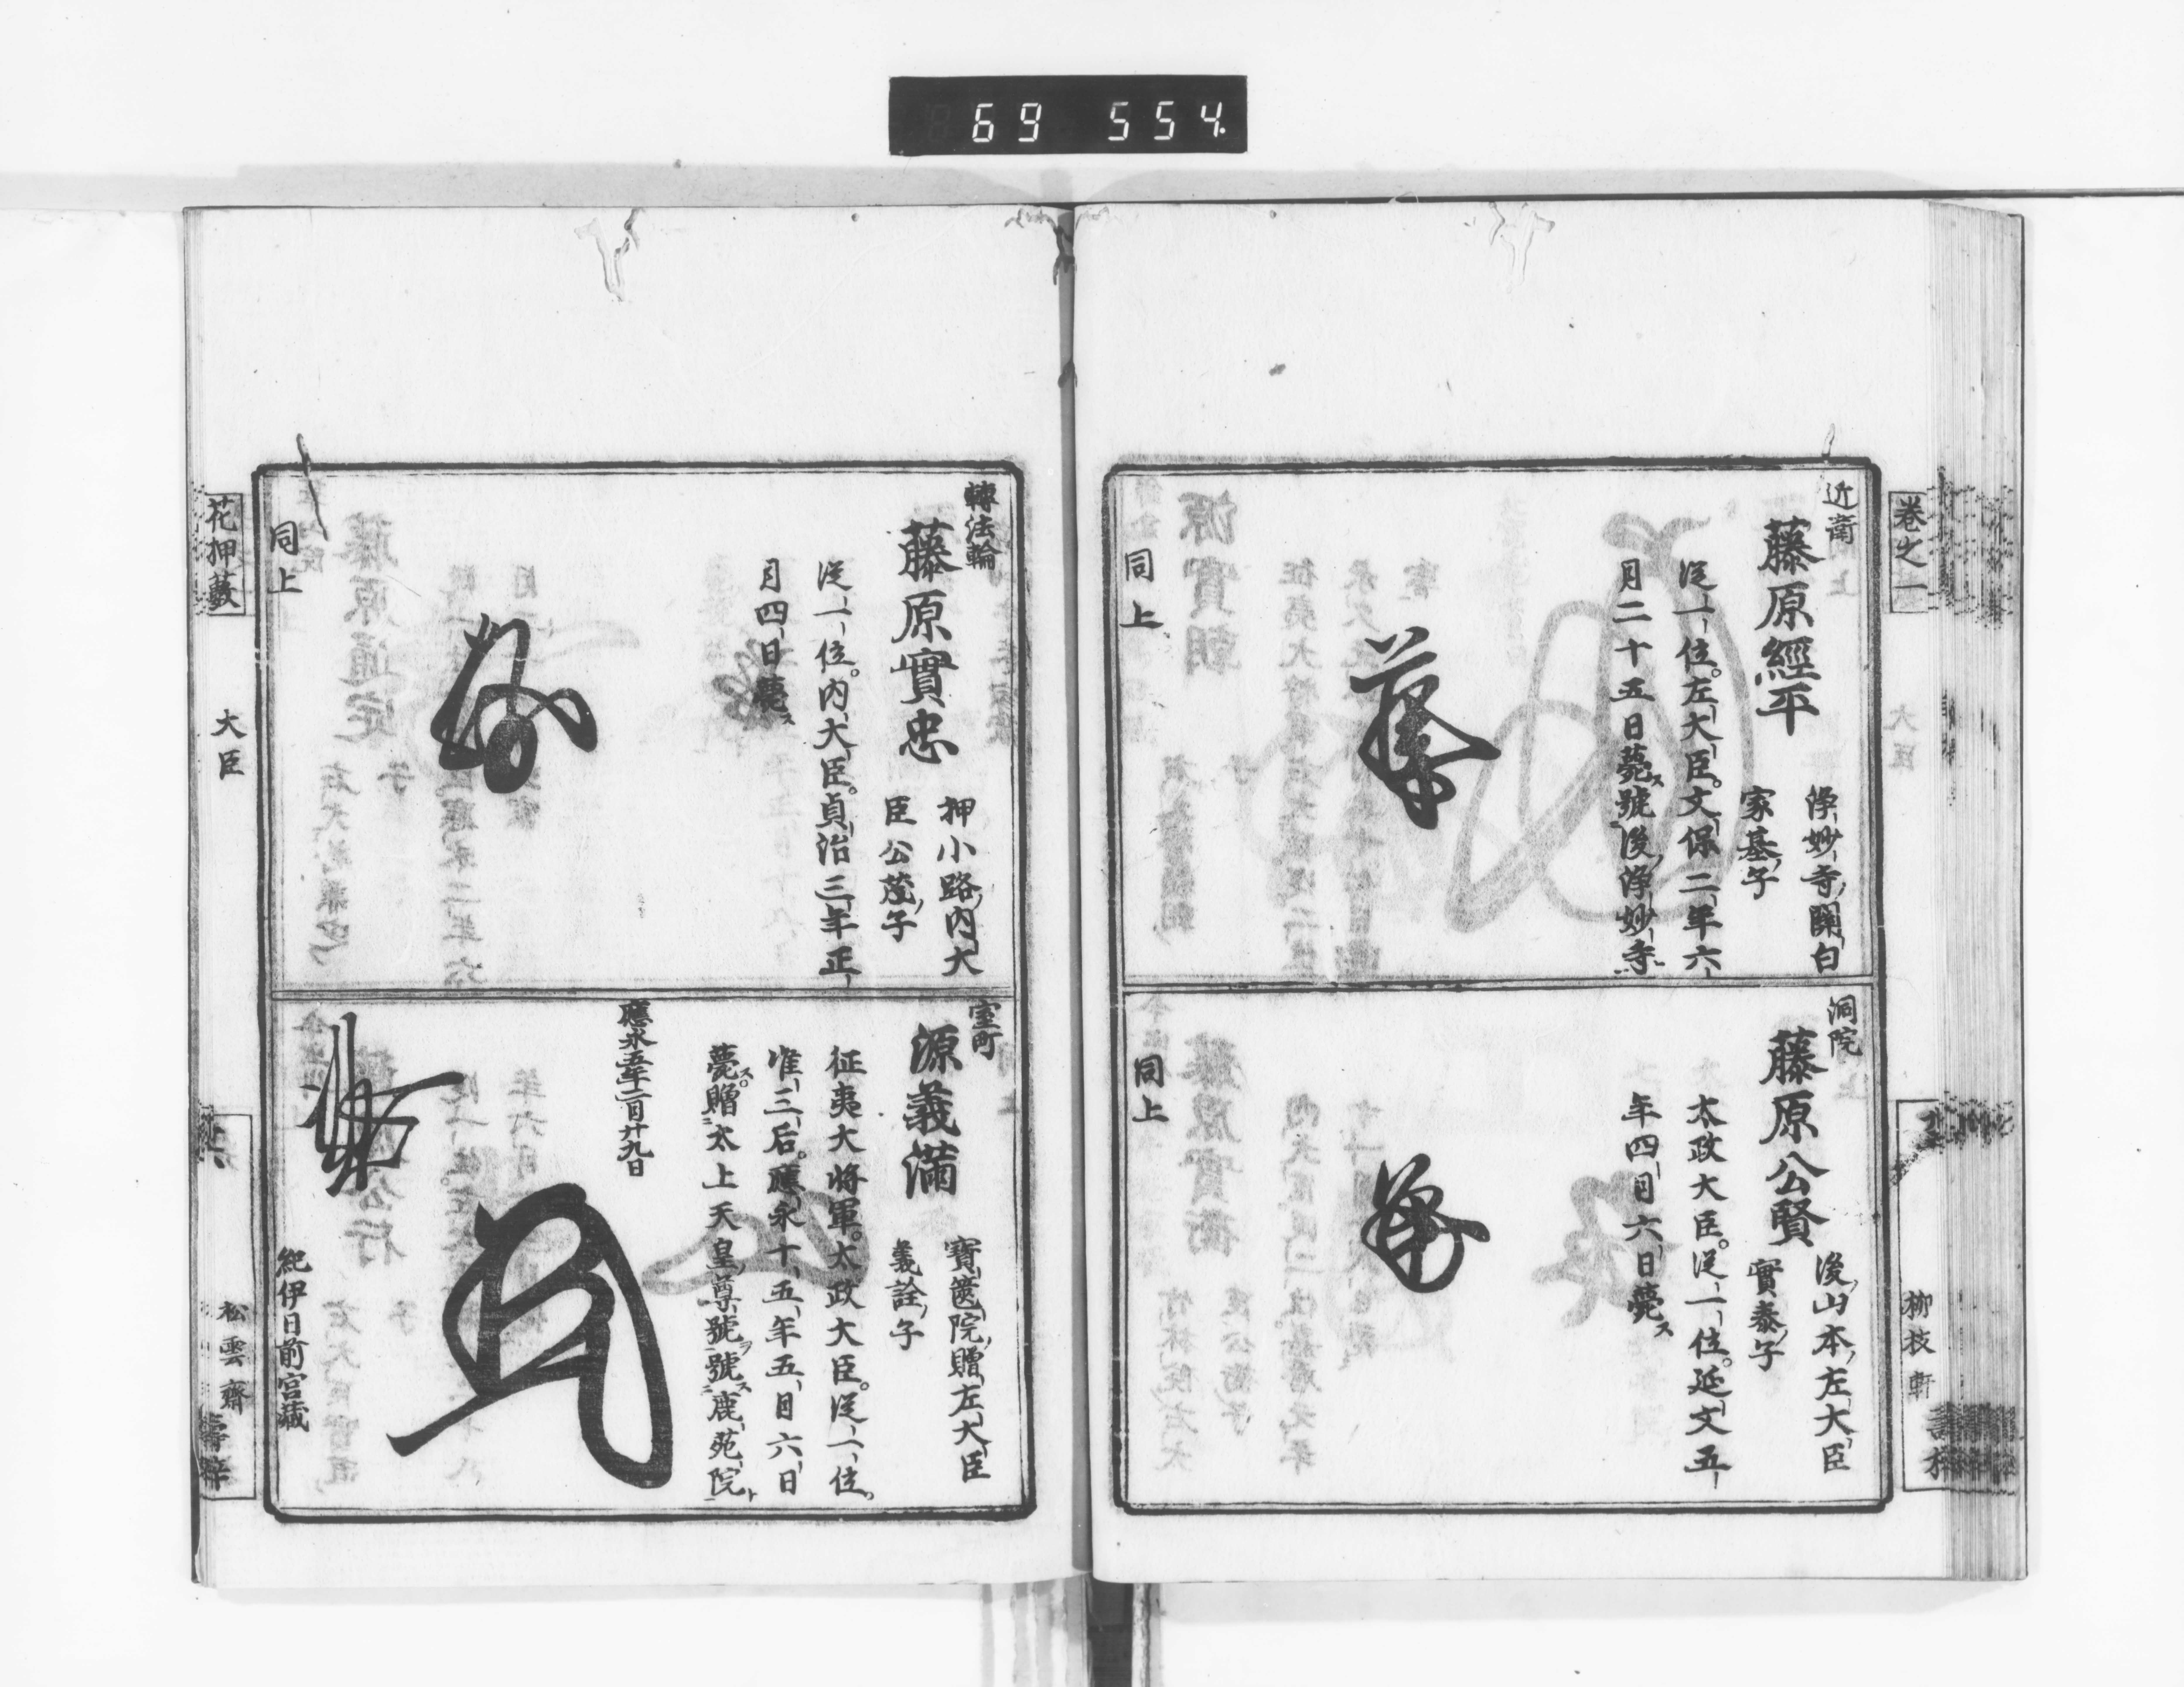 69 554.
巻之一
柳枝軒
近衛
藤原經平
淨妙寺關白
家基子
從一位。左大臣。文保二年六
月二十五日薨ス號後淨妙寺
同上
洞院
藤原公賢
後山本左大臣
實泰子
太政大臣。從一位。延文五
年四月六日薨ス
同上
轉法輪
藤原實忠
押小路内大
臣公茂子
從一位。内大臣。貞治三年正
月四日薨ス
同上
室町
源義滿
寶篋院贈左大臣
義詮子
征夷大將軍。太政大臣。從一位。
准三后。應永十五年五月六日
薨ス。贈ニ太上天皇尊號ヲ號ス鹿苑院ト
應永五年二月廿九日
紀伊日前宮藏
花押藪
大臣
松雲齋